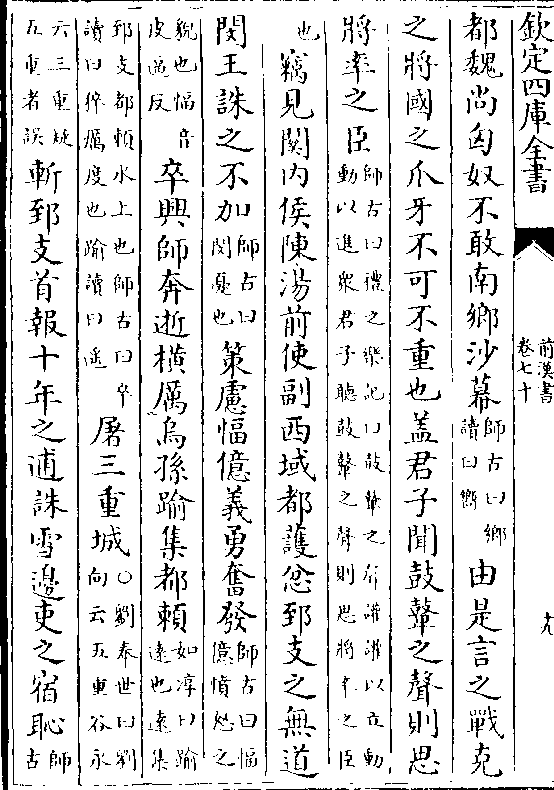 欽定四庫全書
前漢書
卷七十
十九
都魏尚匈奴不敢南鄉沙幕師古曰鄉讀曰嚮由是言之戰克
之將國之爪牙不可不重也盖君子聞鼓鼙之聲則思
將率之臣師古曰禮之樂記曰鼓鼙之聲讙讙以立動動以進衆君子聽鼓鼙之聲則思將率之臣
也竊見關内侯陳湯前使副西域都護忿郅支之無道
閔王誅之不加師古曰閔憂也策慮愊億義勇奮發師古曰愊億憤怒之
貌也愊音皮逼反卒興師奔逝橫厲烏孫踰集都賴如淳曰踰遠也遠集
郅支都賴水上也師古曰卒讀曰猝厲度也踰讀曰遙屠三重城○劉奉世曰劉向云五重谷永
六三重疑五重者誤斬郅支首報十年之逋誅雪邊吏之宿恥師古